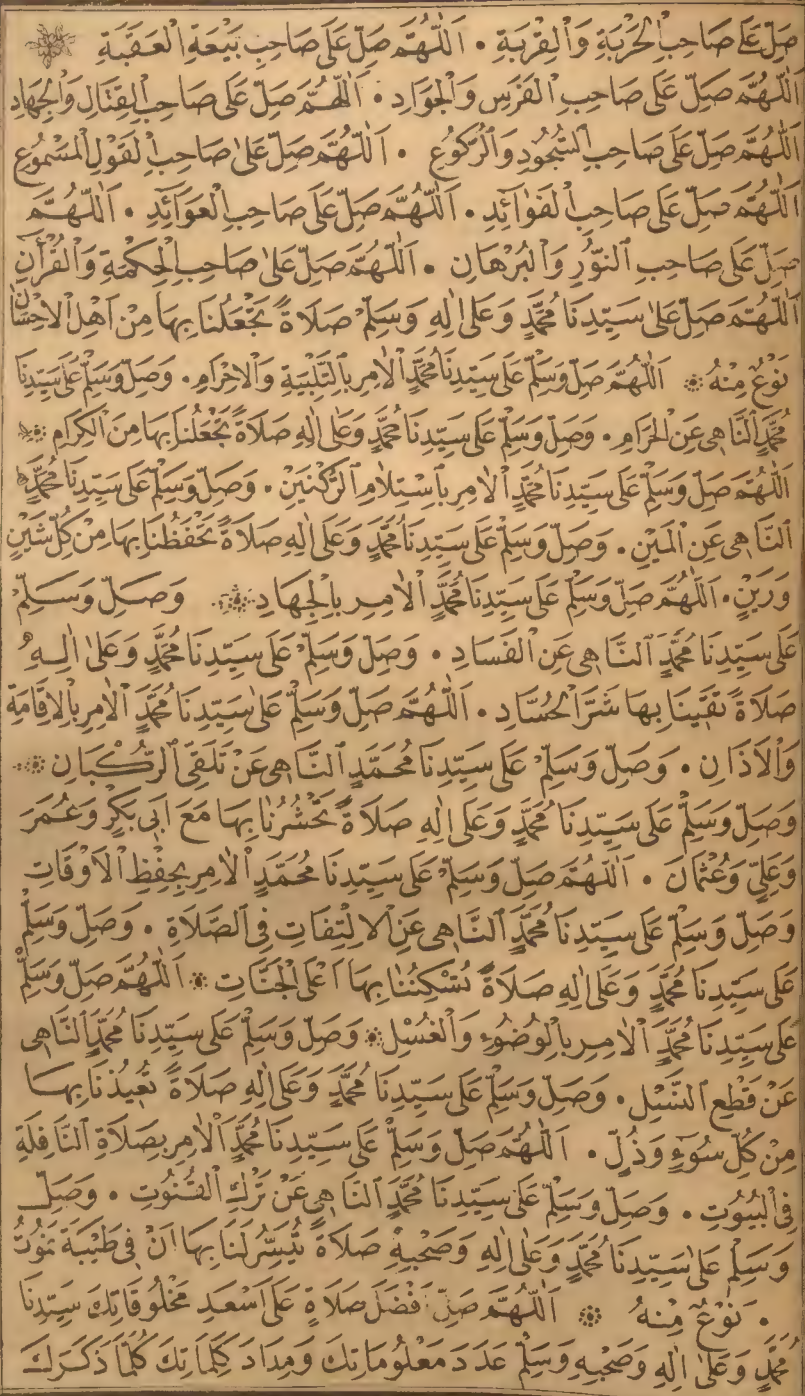 صَلِّ عَلَى صَاحِبِ الْحَرْبَةِ وَالْقِرْبَةِ . اَللّٰهُمَّ صَلِّ عَلَى صَاحِبِ بَيْعَةِ الْعَقَبَةِ
اَللّٰهُمَّ صَلِّ عَلَى صَاحِبِ الْفَرَسِ وَالْجَوَادِ . اَللّٰهُمَّ صَلِّ عَلَى صَاحِبِ الْقِتَالِ وَالْجِهَادِ
اَللّٰهُمَّ صَلِّ عَلَى صَاحِبِ السُّجُودِ وَالرُّكُوعِ . اَللّٰهُمَّ صَلِّ عَلٰى صَاحِبِ الْقَوْلِ الْمَسْمُوعِ
اَللّٰهُمَّ صَلِّ عَلَى صَاحِبِ الْفَوَائِدِ . اَللّٰهُمَّ صَلِّ عَلَى صَاحِبِ الْعَوَائِدِ . اَللّٰهُمَّ
صَلِّ عَلَى صَاحِبِ النُّورِ وَالْبُرْهَانِ . اَللّٰهُمَّ صَلِّ عَلٰى صَاحِبِ الْحِكْمَةِ وَالْقُرْاٰنِ
اَللّٰهُمَّ صَلِّ عَلٰى سَيِّدِنَا مُحَمَّدٍ وَعَلٰى اٰلِهِ وَسَلِّمْ صَلَاةً تَجْعَلُنَا بِهَا مِنْ اَهْلِ الْاِحْسَانِ
نَوْعٌ مِنْهُ اَللّٰهُمَّ صَلِّ وَسَلِّمْ عَلَى سَيِّدِنَا مُحَمَّدٍ الْاٰمِرِ بِالتَّلْبِيَةِ وَالْاِحْرَامِ . وَصَلِّ وَسَلِّمْ عَلَى سَيِّدِنَا
مُحَمَّدٍ النَّاهِى عَنِ الْحَرَامِ . وَصَلِّ وَسَلِّمْ عَلَى سَيِّدِنَا مُحَمَّدٍ وَعَلٰى اٰلِهِ صَلَاةً تَجْعَلُنَا بِهَا مِنَ الْكِرَامِ
اَللّٰهُمَّ صَلِّ وَسَلِّمْ عَلَى سَيِّدِنَا مُحَمَّدٍ الْاٰمِرِ بِاسْتِلَامِ الرُّكْنَيْنِ . وَصَلِّ وَسَلِّمْ عَلَى سَيِّدِنَا مُحَمَّدٍ
النَّاهِى عَنِ الْمَيْنِ . وَصَلِّ وَسَلِّمْ عَلَى سَيِّدِنَا مُحَمَّدٍ وَعَلَى اٰلِهِ صَلَاةً تَحْفَظُنَا بِهَا مِنْ كُلِّ شَيْنٍ
وَرَيْنٍ . اَللّٰهُمَّ صَلِّ وَسَلِّمْ عَلَى سَيِّدِنَا مُحَمَّدٍ الْاٰمِرِ بِالْجِهَادِ وَصَلِّ وَسَلِّمْ
عَلَى سَيِّدِنَا مُحَمَّدٍ النَّاهِى عَنِ الْفَسَادِ . وَصَلِّ وَسَلِّمْ عَلَى سَيِّدِنَا مُحَمَّدٍ وَعَلٰى اٰلِهِ
صَلَاةً تَقِينَا بِهَا شَرَّ الْحُسَّادِ . اَللّٰهُمَّ صَلِّ وَسَلِّمْ عَلٰى سَيِّدِنَا مُحَمَّدٍ الْاٰمِرِ بِالْاِقَامَةِ
وَالْاَذَانِ . وَصَلِّ وَسَلِّمْ عَلَى سَيِّدِنَا مُحَمَّدٍ النَّاهِى عَنْ تَلَقِّى الرُّكْبَانِ
وَصَلِّ وَسَلِّمْ عَلَى سَيِّدِنَا مُحَمَّدٍ وَعَلَى اٰلِهِ صَلَاةً تَحْشُرُنَا بِهَا مَعَ اَبِى بَكْرٍ وَعُمَرَ
وَعَلِىٍّ وَعُثْمَانَ . اَللّٰهُمَّ صَلِّ وَسَلِّمْ عَلَى سَيِّدِنَا مُحَمَّدٍ الْاٰمِرِ بِحِفْظِ الْاَوْقَاتِ
وَصَلِّ وَسَلِّمْ عَلَى سَيِّدِنَا مُحَمَّدٍ النَّاهِى عَنِ الْاِلْتِفَاتِ فِى الصَّلَاةِ . وَصَلِّ وَسَلِّمْ
عَلَى سَيِّدِنَا مُحَمَّدٍ وَعَلٰى اٰلِهِ صَلَاةً تُسْكِنُنَا بِهَا اَعْلَى الْجَنَّاتِ اَللّٰهُمَّ صَلِّ وَسَلِّمْ
عَلَى سَيِّدِنَا مُحَمَّدٍ الْاٰمِرِ بِالْوُضُوءِ وَالْغُسْلِ وَصَلِّ وَسَلِّمْ عَلَى سَيِّدِنَا مُحَمَّدٍ النَّاهِى
عَنْ قَطْعِ النَّسْلِ . وَصَلِّ وَسَلِّمْ عَلَى سَيِّدِنَا مُحَمَّدٍ وَعَلَى اٰلِهِ صَلَاةً تُعِيذُنَا بِهَا
مِنْ كُلِّ سُوءٍ وَذُلٍّ . اَللّٰهُمَّ صَلِّ وَسَلِّمْ عَلَى سَيِّدِنَا مُحَمَّدٍ الْاٰمِرِ بِصَلَاةِ النَّافِلَةِ
فِى الْبُيُوتِ . وَصَلِّ وَسَلِّمْ عَلَى سَيِّدِنَا مُحَمَّدٍ النَّاهِى عَنْ تَرْكِ الْقُنُوتِ . وَصَلِّ
وَسَلِّمْ عَلٰى سَيِّدِنَا مُحَمَّدٍ وَعَلٰى اٰلِهِ وَصَحْبِهِ صَلَاةً تُيَسِّرُ لَنَا بِهَا اَنْ فِى طَيْبَةَ نَمُوتُ
. نَوْعٌ مِنْهُ اَللّٰهُمَّ صَلِّ اَفْضَلَ صَلَاةٍ عَلَى اَسْعَدِ مَخْلُوقَاتِكَ سَيِّدِنَا
مُحَمَّدٍ وَعَلٰى اٰلِهِ وَصَحْبِهِ وَسَلِّمْ عَدَدَ مَعْلُومَاتِكَ وَمِدَادَ كَلِمَاتِكَ كُلَّمَا ذَكَرَكَ